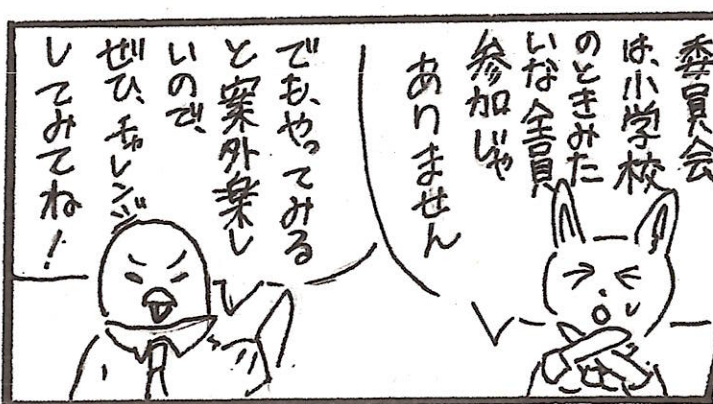 委員会
は、小学校
のときみた
いな全員
参加じゃ
ありません
でも、やってみる
と案外楽し
いので、
ぜひ、チャレンジ
してみてね!